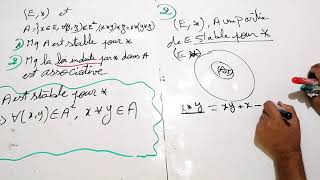 (E, *) et
A = {x ∈ E, ∀(y, z) ∈ E², (x*y)*z = x*(y*z)}
1) Mq A est stable pour *
2) Mq la loi induite par * dans A
est associative
A est stable pour *
⇒ ∀(x,y) ∈ A², x * y ∈ A
2) (E, *), A une partie
de E stable pour *
(E
x * y = xy + x -